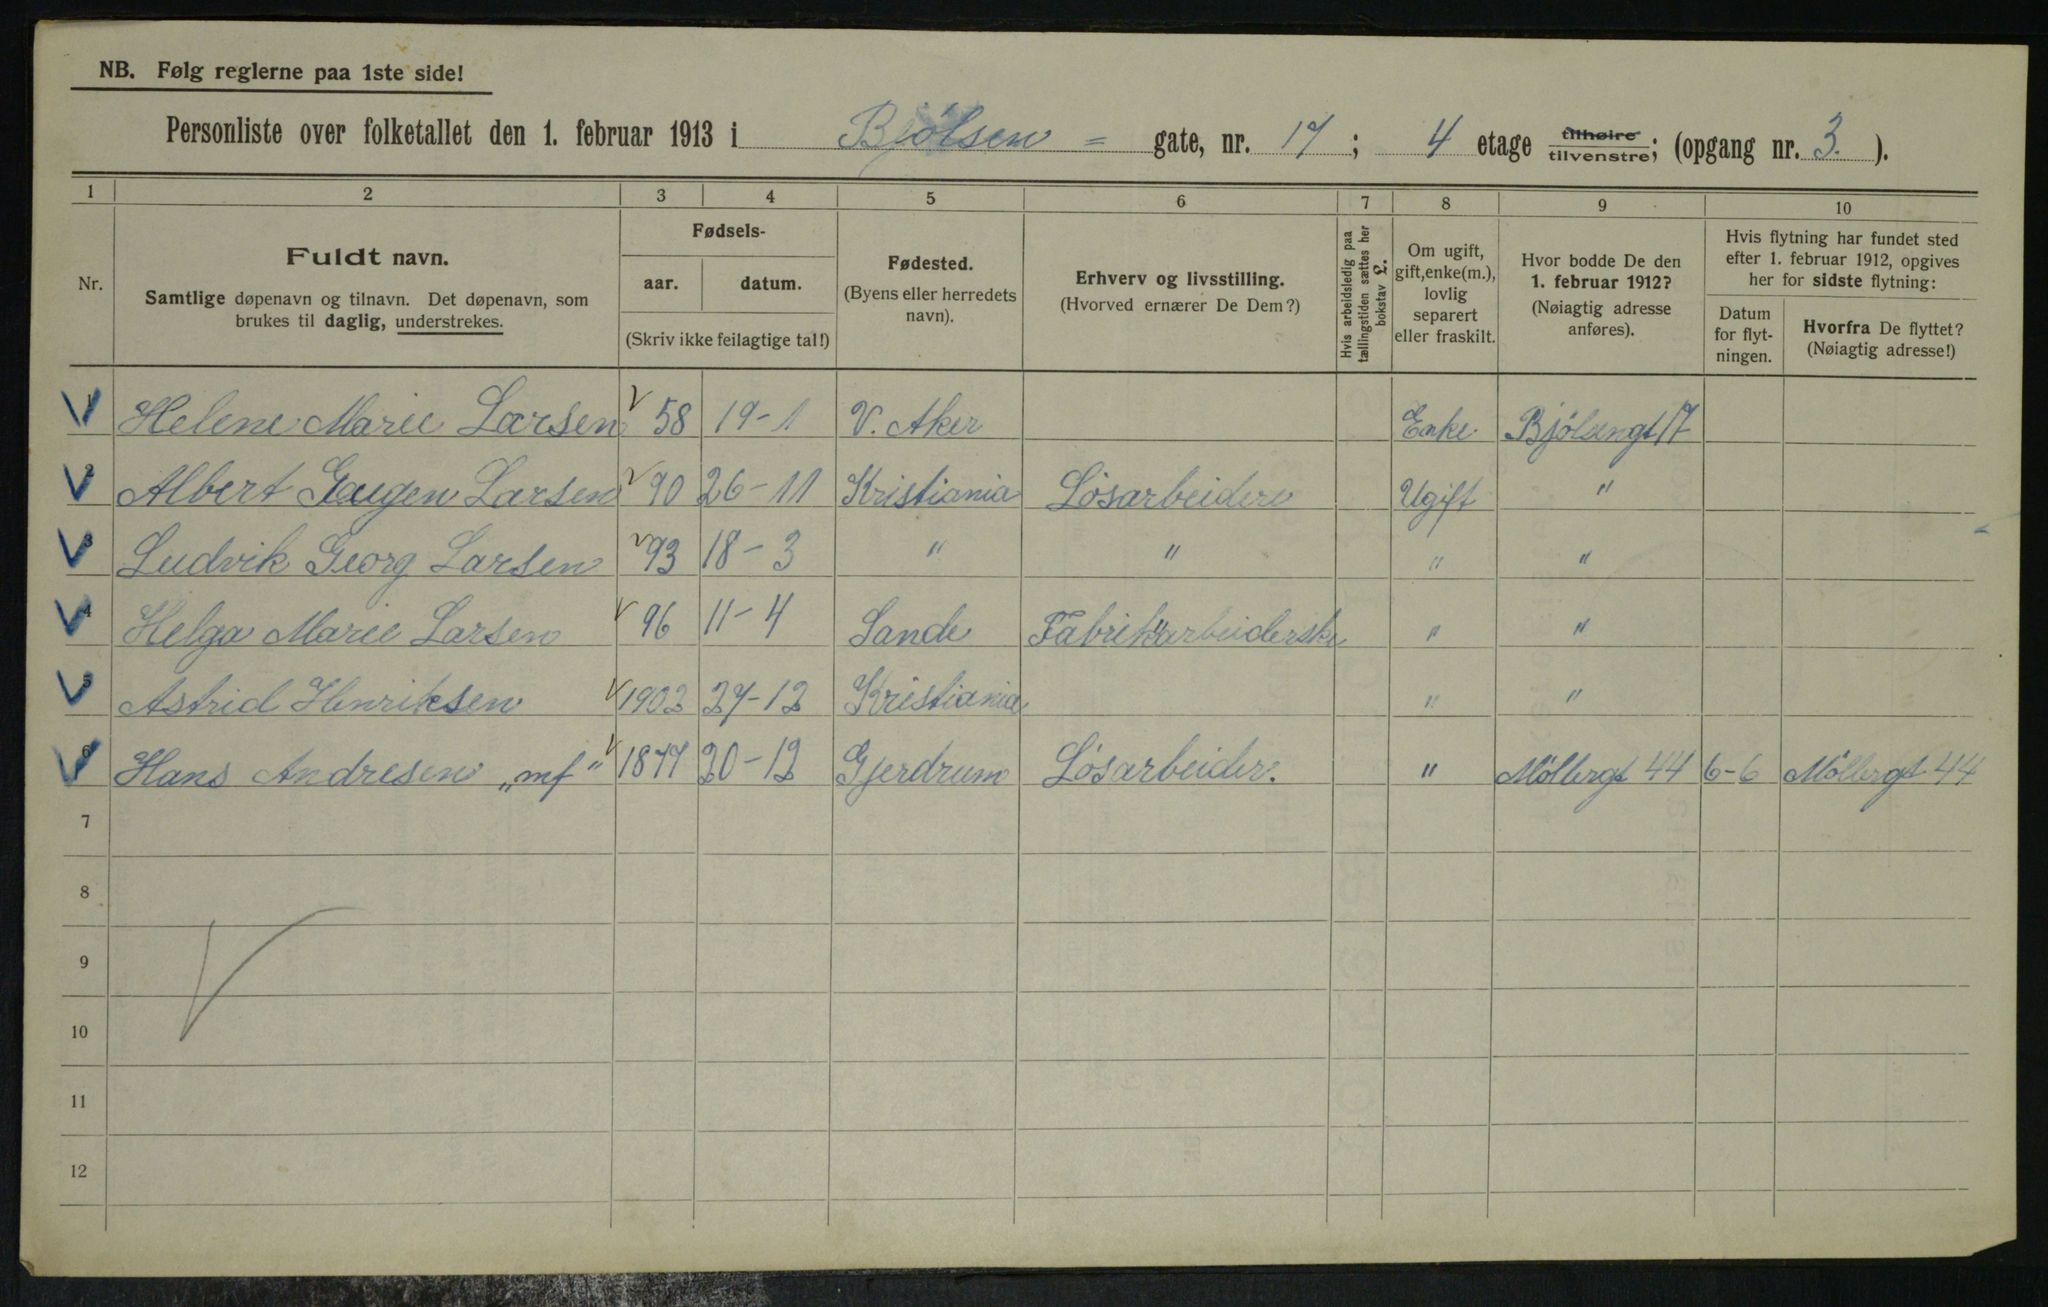 NB. Følg reglerne paa 1ste side!
Personliste over folketallet den 1. februar 1913 i Bjølsen = gate, nr. 17; 4 etage tilhøire tilvenstre; (opgang nr. 3.).
1 2 3 4 5 6 7 8 9 10
Nr.
Fuldt navn.
Samtlige døpenavn og tilnavn. Det døpenavn, som
brukes til daglig, understrekes.
Fødsels-
aar. datum.
(Skriv ikke feilagtige tal!)
Fødested.
(Byens eller herredets
navn).
Erhverv og livsstilling.
(Hvorved ernærer De Dem?)
Hvis arbeidsledig paa
tællingstiden sættes her
bokstav L.
Om ugift,
gift, enke(m.),
lovlig
separert
eller fraskilt.
Hvor bodde De den
1. februar 1912?
(Nøiagtig adresse
anføres).
Hvis flytning har fundet sted
efter 1. februar 1912, opgives
her for sidste flytning:
Datum
for flyt-
ningen.
Hvorfra De flyttet?
(Nøiagtig adresse!)
1 Helene Marie Larsen 58 19-1 V. Aker Enke. Bjølsengt 17
2 Albert Eugen Larsen 90 26-11 Kristiania Løsarbeidere Ugift "
3 Ludvik Georg Larsen 93 18-3 " " " "
4 Helga Marie Larsen 96 11-4 Sande Fabrikarbeiderske " "
5 Astrid Henriksen 1902 27-12 Kristiania " "
6 Hans Andresen „mf" 1877 20-12 Gjerdrum Løsarbeider. " Møllergt 44 6-6 Møllergt 44
7
8
9
10
11
12